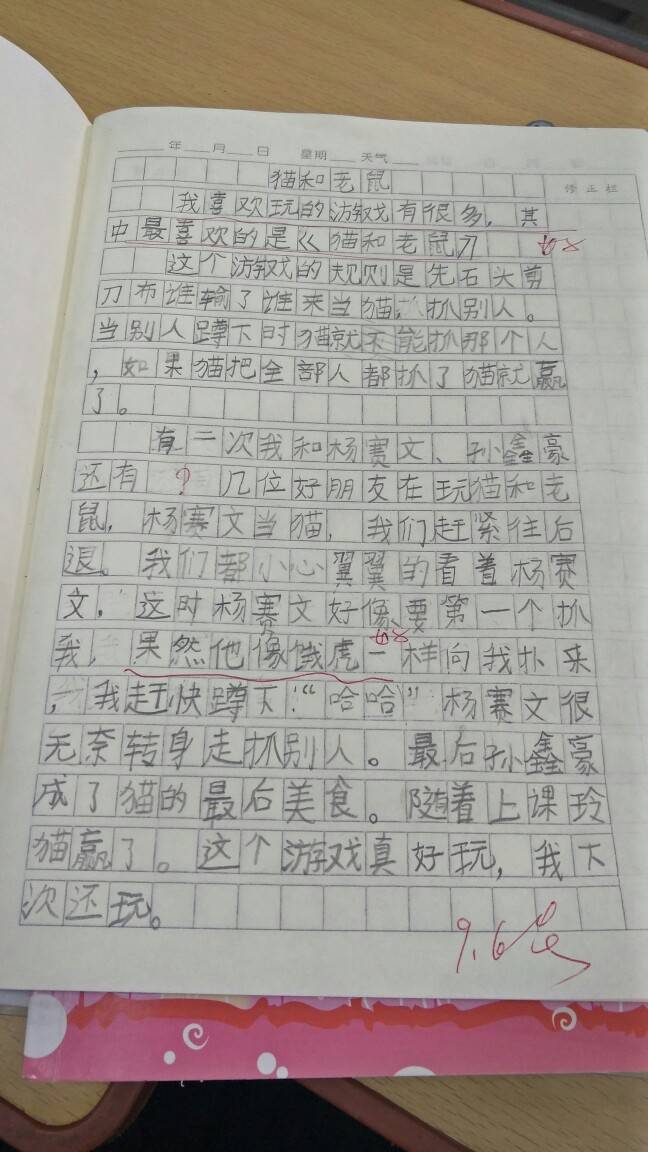 年 月 日 星期 天气
猫和老鼠 修正栏
我喜欢玩的游戏有很多，其
中最喜欢的是《猫和老鼠》
这个游戏的规则是先石头剪
刀布谁输了谁来当猫，抓别人。
当别人蹲下时猫就不能抓那个人
，如果猫把全部人都抓了猫就赢
了。
有一次我和杨赛文、孙鑫豪
还有 ? 几位好朋友在玩猫和老
鼠，杨赛文当猫，我们赶紧往后
退。我们都小心翼翼的看着杨赛
文，这时杨赛文好像要第一个抓
我，果然他像饿虎一样向我扑来
，我赶快蹲下！“哈哈”杨赛文很
无奈转身走抓别人。最后孙鑫豪
成了猫的最后美食。随着上课玲
猫赢了。这个游戏真好玩，我下
次还玩。
9.6